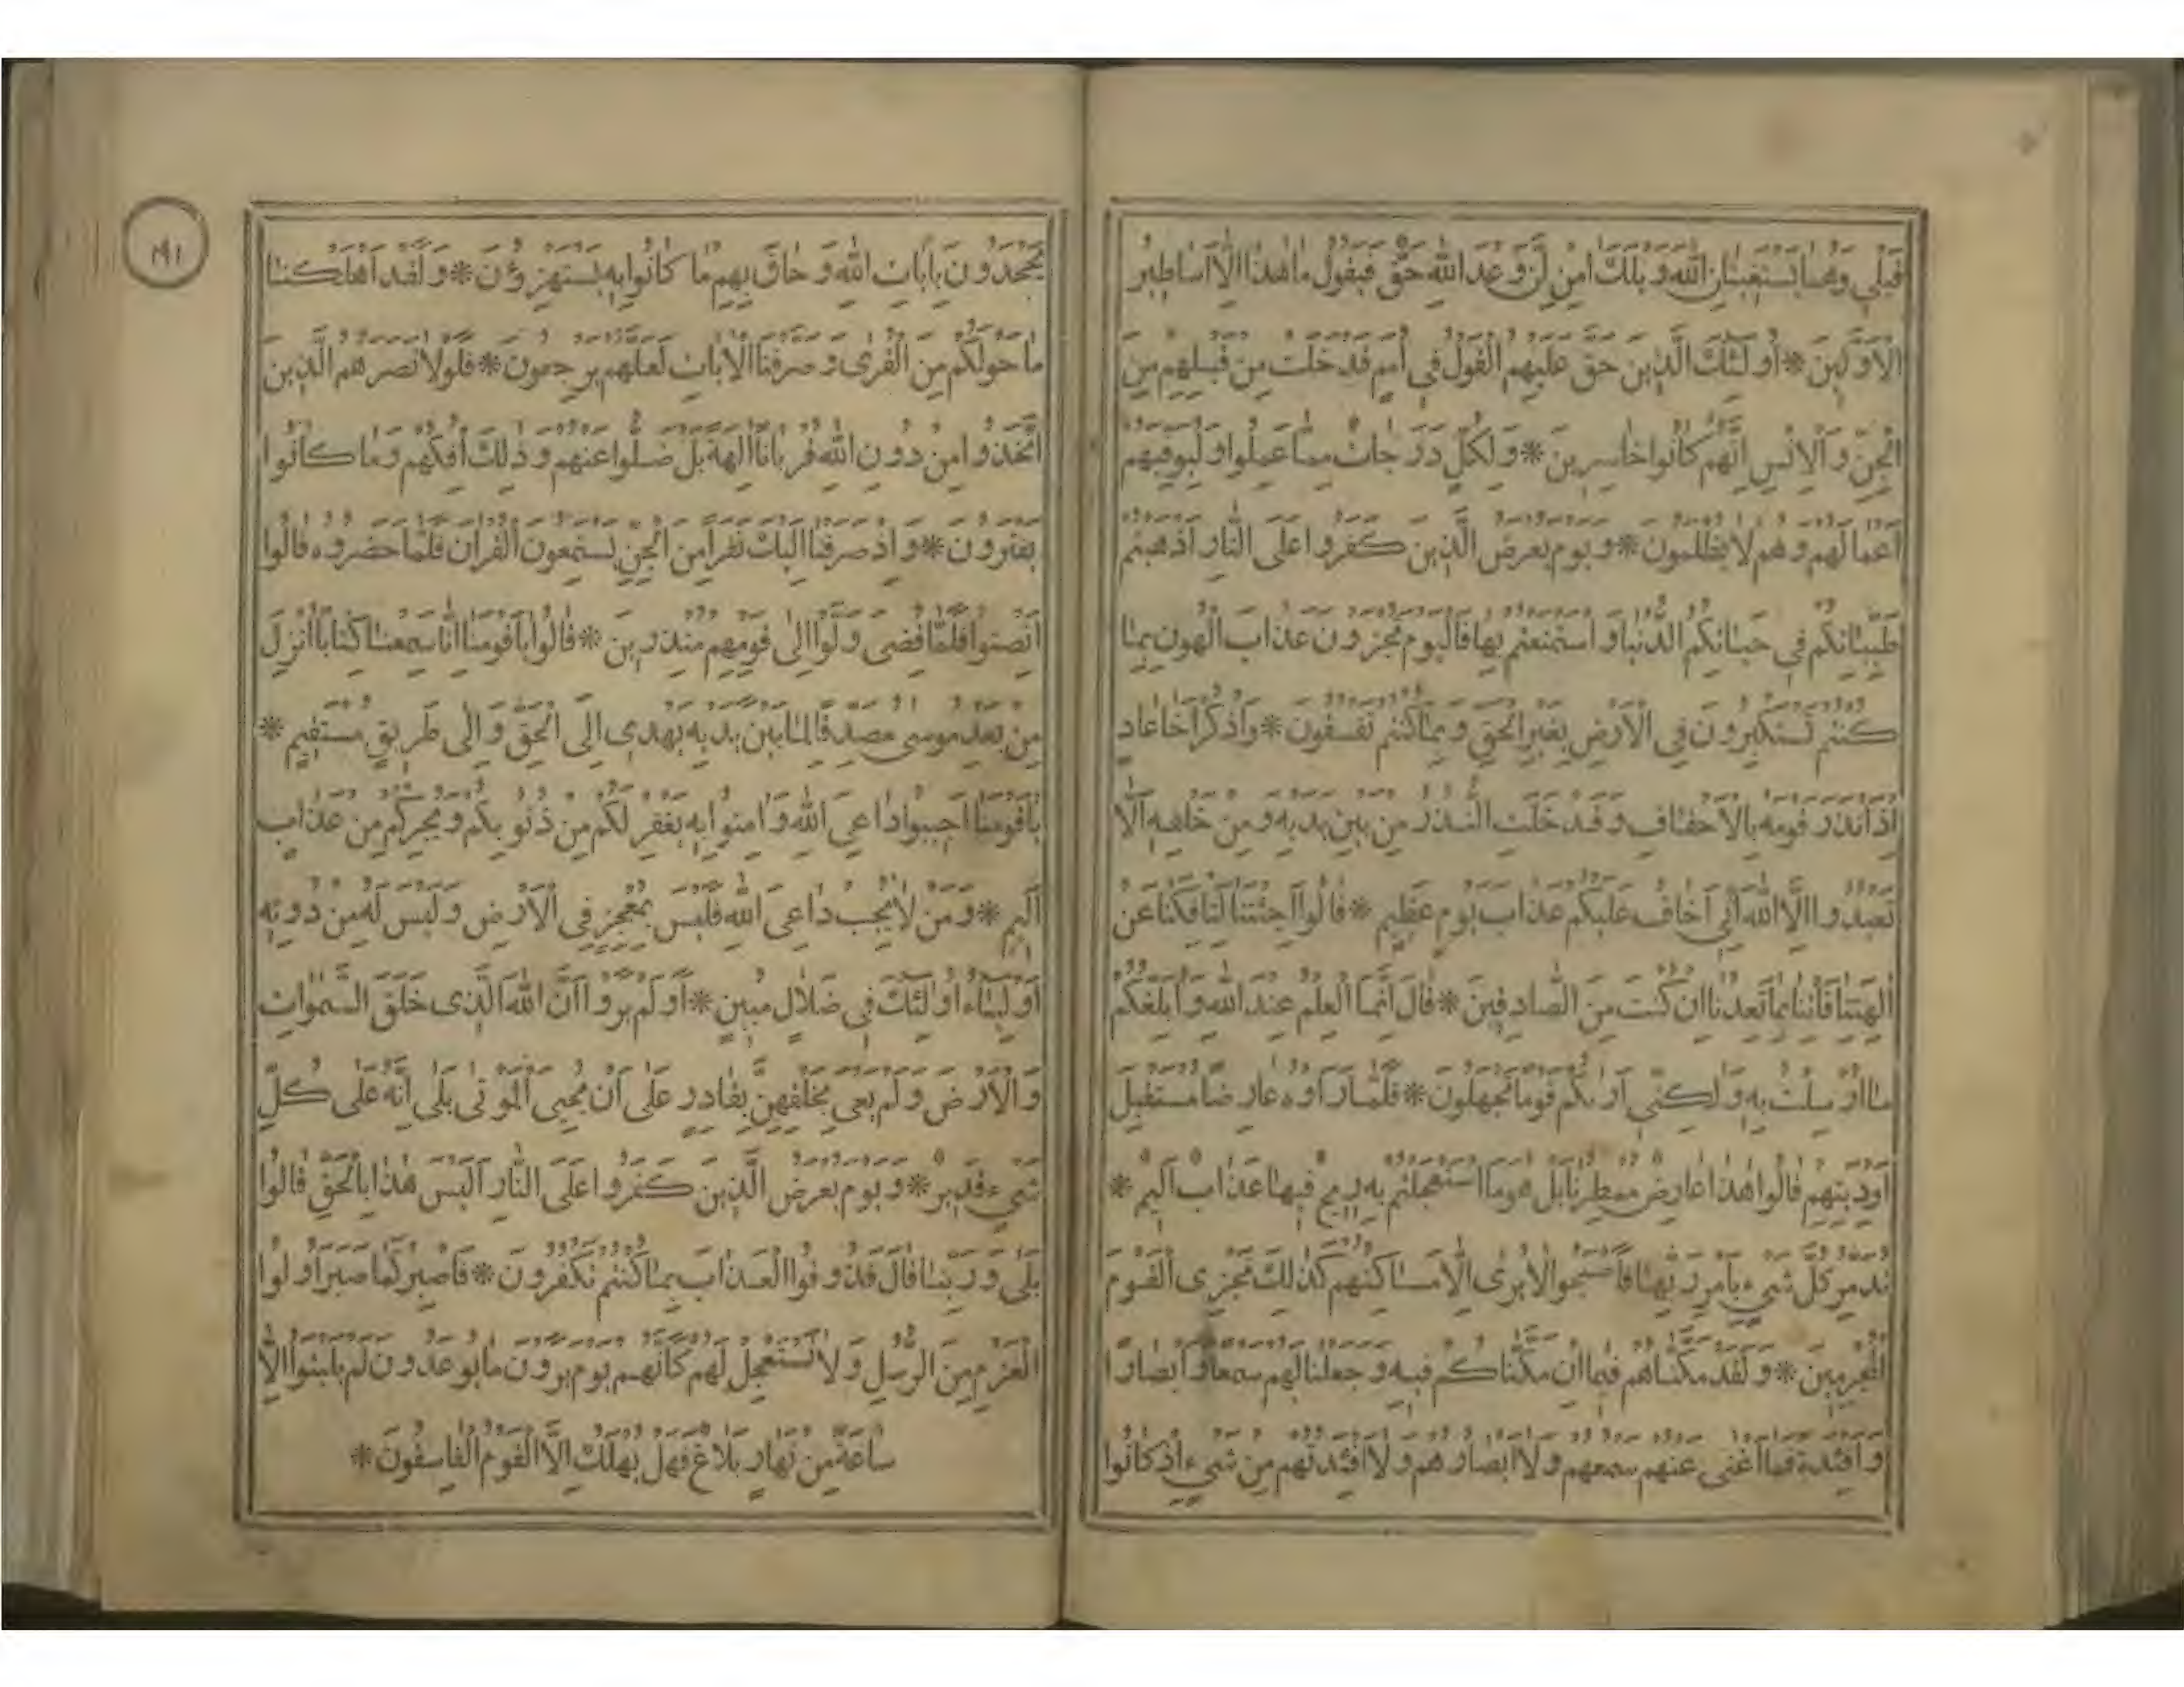 قَبْلِي وَهُمَا يَسْتَغِيثَانِ اللّٰهَ وَيْلَكَ اٰمِنْ اِنَّ وَعْدَ اللّٰهِ حَقٌّ فَيَقُولُ مَا هٰذَا اِلَّا اَسَاطِيرُ
الْاَوَّلِينَ * اُولٰئِكَ الَّذِينَ حَقَّ عَلَيْهِمُ الْقَوْلُ فِي اُمَمٍ قَدْ خَلَتْ مِنْ قَبْلِهِمْ مِنَ
الْجِنِّ وَالْاِنْسِ اِنَّهُمْ كَانُوا خَاسِرِينَ * وَلِكُلٍّ دَرَجَاتٌ مِمَّا عَمِلُوا وَلِيُوَفِّيَهُمْ
اَعْمَالَهُمْ وَهُمْ لَا يُظْلَمُونَ * وَيَوْمَ يُعْرَضُ الَّذِينَ كَفَرُوا عَلَى النَّارِ اَذْهَبْتُمْ
طَيِّبَاتِكُمْ فِي حَيَاتِكُمُ الدُّنْيَا وَاسْتَمْتَعْتُمْ بِهَا فَالْيَوْمَ تُجْزَوْنَ عَذَابَ الْهُونِ بِمَا
كُنْتُمْ تَسْتَكْبِرُونَ فِي الْاَرْضِ بِغَيْرِ الْحَقِّ وَبِمَا كُنْتُمْ تَفْسُقُونَ * وَاذْكُرْ اَخَا عَادٍ
اِذْ اَنْذَرَ قَوْمَهُ بِالْاَحْقَافِ وَقَدْ خَلَتِ النُّذُرُ مِنْ بَيْنِ يَدَيْهِ وَمِنْ خَلْفِهِ اَلَّا
تَعْبُدُوا اِلَّا اللّٰهَ اِنِّي اَخَافُ عَلَيْكُمْ عَذَابَ يَوْمٍ عَظِيمٍ * قَالُوا اَجِئْتَنَا لِتَاْفِكَنَا عَنْ
اٰلِهَتِنَا فَاْتِنَا بِمَا تَعِدُنَا اِنْ كُنْتَ مِنَ الصَّادِقِينَ * قَالَ اِنَّمَا الْعِلْمُ عِنْدَ اللّٰهِ وَاُبَلِّغُكُمْ
مَا اُرْسِلْتُ بِهِ وَلٰكِنِّي اَرٰيكُمْ قَوْمًا تَجْهَلُونَ * فَلَمَّا رَاَوْهُ عَارِضًا مُسْتَقْبِلَ
اَوْدِيَتِهِمْ قَالُوا هٰذَا عَارِضٌ مُمْطِرُنَا بَلْ هُوَ مَا اسْتَعْجَلْتُمْ بِهِ رِيحٌ فِيهَا عَذَابٌ اَلِيمٌ *
تُدَمِّرُ كُلَّ شَيْءٍ بِاَمْرِ رَبِّهَا فَاَصْبَحُوا لَا يُرٰى اِلَّا مَسَاكِنُهُمْ كَذٰلِكَ نَجْزِي الْقَوْمَ
الْمُجْرِمِينَ * وَلَقَدْ مَكَّنَّاهُمْ فِيمَا اِنْ مَكَّنَّاكُمْ فِيهِ وَجَعَلْنَا لَهُمْ سَمْعًا وَاَبْصَارًا
وَاَفْئِدَةً فَمَا اَغْنٰى عَنْهُمْ سَمْعُهُمْ وَلَا اَبْصَارُهُمْ وَلَا اَفْئِدَتُهُمْ مِنْ شَيْءٍ اِذْ كَانُوا
١٩١
يَجْحَدُونَ بِاٰيَاتِ اللّٰهِ وَحَاقَ بِهِمْ مَا كَانُوا بِهِ يَسْتَهْزِؤُنَ * وَلَقَدْ اَهْلَكْنَا
مَا حَوْلَكُمْ مِنَ الْقُرٰى وَصَرَّفْنَا الْاٰيَاتِ لَعَلَّهُمْ يَرْجِعُونَ * فَلَوْلَا نَصَرَهُمُ الَّذِينَ
اتَّخَذُوا مِنْ دُونِ اللّٰهِ قُرْبَانًا اٰلِهَةً بَلْ ضَلُّوا عَنْهُمْ وَذٰلِكَ اِفْكُهُمْ وَمَا كَانُوا
يَفْتَرُونَ * وَاِذْ صَرَفْنَا اِلَيْكَ نَفَرًا مِنَ الْجِنِّ يَسْتَمِعُونَ الْقُرْاٰنَ فَلَمَّا حَضَرُوهُ قَالُوا
اَنْصِتُوا فَلَمَّا قُضِيَ وَلَّوْا اِلٰى قَوْمِهِمْ مُنْذِرِينَ * قَالُوا يَاقَوْمَنَا اِنَّا سَمِعْنَا كِتَابًا اُنْزِلَ
مِنْ بَعْدِ مُوسٰى مُصَدِّقًا لِمَا بَيْنَ يَدَيْهِ يَهْدِي اِلَى الْحَقِّ وَاِلٰى طَرِيقٍ مُسْتَقِيمٍ *
يَاقَوْمَنَا اَجِيبُوا دَاعِيَ اللّٰهِ وَاٰمِنُوا بِهِ يَغْفِرْ لَكُمْ مِنْ ذُنُوبِكُمْ وَيُجِرْكُمْ مِنْ عَذَابٍ
اَلِيمٍ * وَمَنْ لَا يُجِبْ دَاعِيَ اللّٰهِ فَلَيْسَ بِمُعْجِزٍ فِي الْاَرْضِ وَلَيْسَ لَهُ مِنْ دُونِهِ
اَوْلِيَاءُ اُولٰئِكَ فِي ضَلَالٍ مُبِينٍ * اَوَلَمْ يَرَوْا اَنَّ اللّٰهَ الَّذِي خَلَقَ السَّمٰوَاتِ
وَالْاَرْضَ وَلَمْ يَعْيَ بِخَلْقِهِنَّ بِقَادِرٍ عَلٰى اَنْ يُحْيِيَ الْمَوْتٰى بَلٰى اِنَّهُ عَلٰى كُلِّ
شَيْءٍ قَدِيرٌ * وَيَوْمَ يُعْرَضُ الَّذِينَ كَفَرُوا عَلَى النَّارِ اَلَيْسَ هٰذَا بِالْحَقِّ قَالُوا
بَلٰى وَرَبِّنَا قَالَ فَذُوقُوا الْعَذَابَ بِمَا كُنْتُمْ تَكْفُرُونَ * فَاصْبِرْ كَمَا صَبَرَ اُولُوا
الْعَزْمِ مِنَ الرُّسُلِ وَلَا تَسْتَعْجِلْ لَهُمْ كَاَنَّهُمْ يَوْمَ يَرَوْنَ مَا يُوعَدُونَ لَمْ يَلْبَثُوا اِلَّا
سَاعَةً مِنْ نَهَارٍ بَلَاغٌ فَهَلْ يُهْلَكُ اِلَّا الْقَوْمُ الْفَاسِقُونَ *